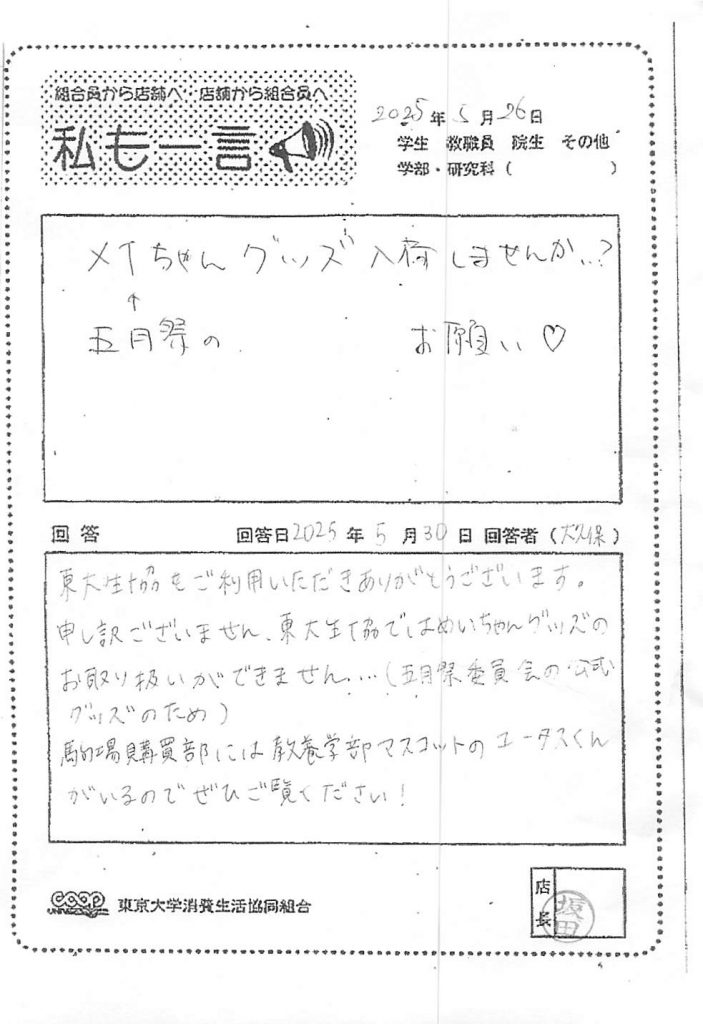 組合員から店舗へ・店舗から組合員へ
私も一言
2025年5月26日
学生 教職員 院生 その他
学部・研究科( )
メイちゃんグッズ入荷しませんか..?
↑
五月祭の お願い♡
回答 回答日2025年5月30日 回答者(大久保)
東大生協をご利用いただきありがとうございます。
申し訳ございません、東大生協ではめいちゃんグッズの
お取り扱いができません…(五月祭委員会の公式
グッズのため)
駒場購買部には教養学部マスコットのユータスくん
がいるのでぜひご覧ください!
coop 東京大学消費生活協同組合
店長
坂田